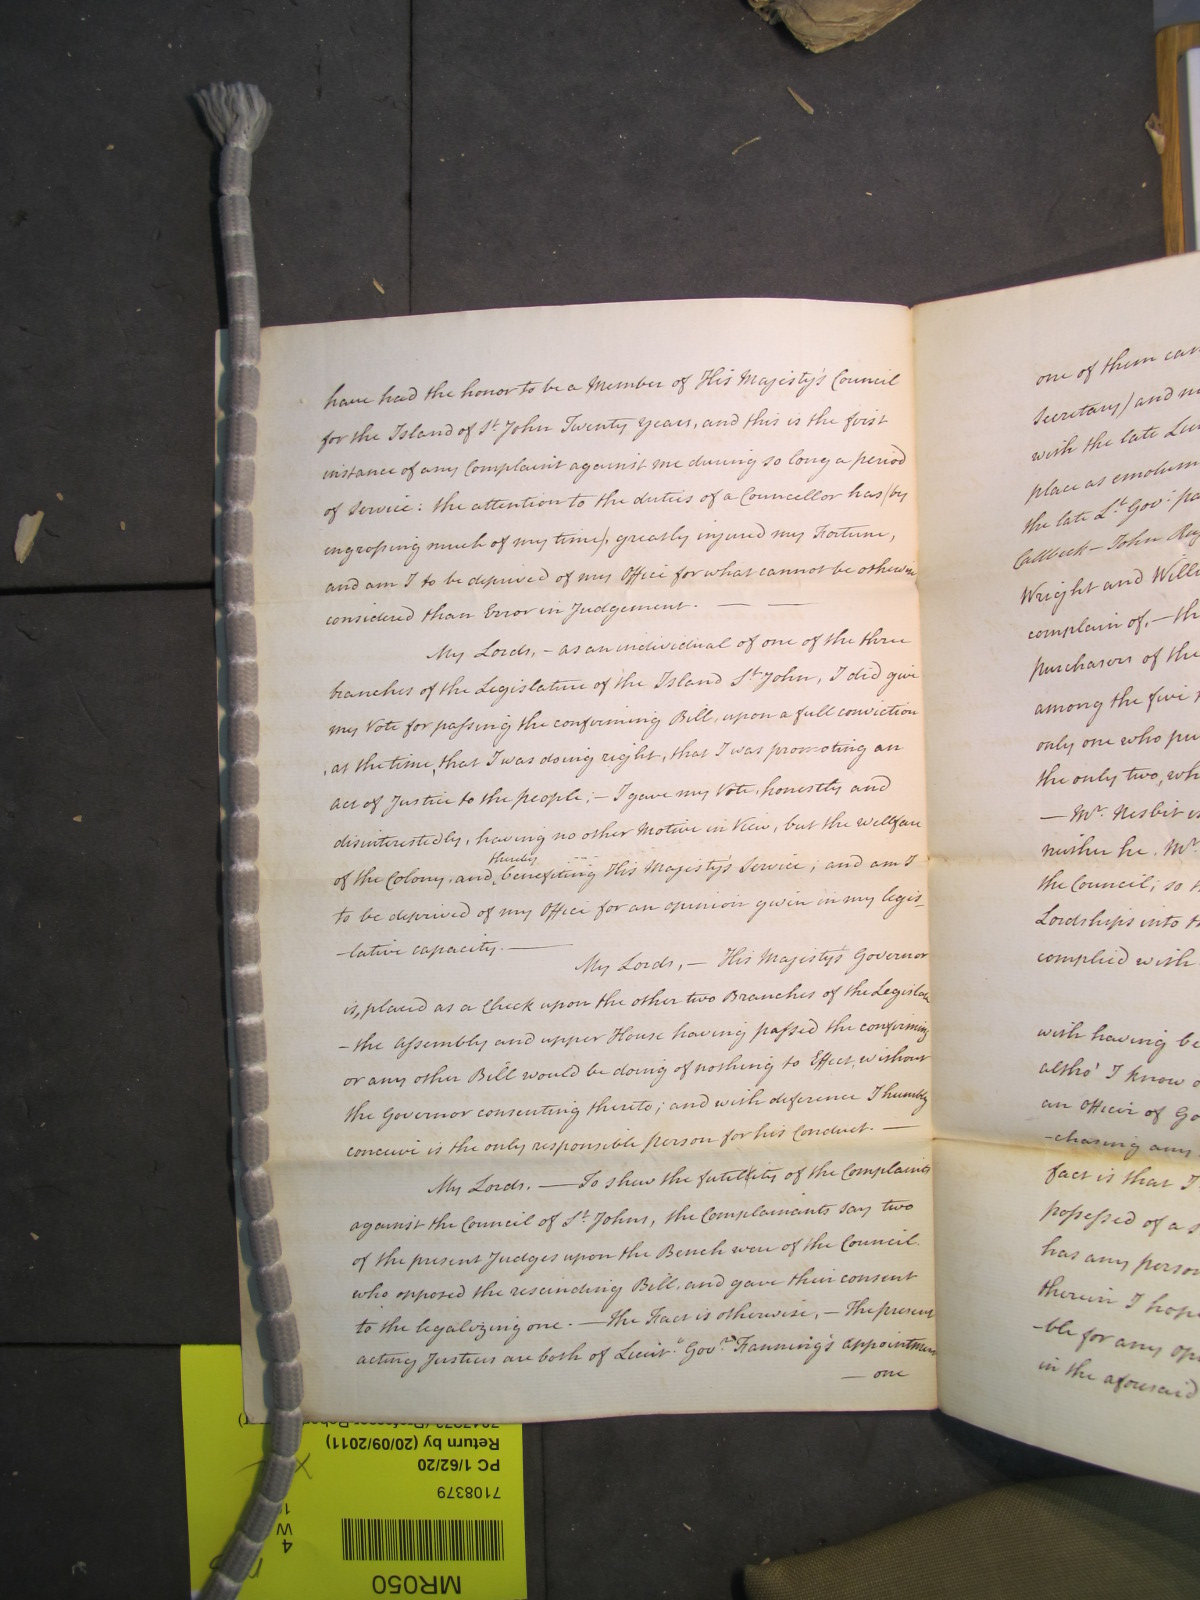 have had the honor to be a Member of His Majesty's Council
for the Island of St John Twenty Years, and this is the first
instance of any Complaint against me during so long a period
of Service: the attention to the duties of a Councellor has (by
engrossing much of my time), greatly injured my Fortune,
and am I to be deprived of my Office for what cannot be otherwise
considered than Error in Judgement. — —
My Lords, — as an individual of one of the three
branches of the Legislature of the Island St John, I did give
my Vote for passing the confirming Bill, upon a full conviction
, at the time, that I was doing right, that I was promoting an
act of Justice to the people; — I gave my Vote, honestly and
disinterestedly, having no other Motive in View, but the wellfare
thereby
of the Colony, and, benefiting His Majesty's Service; and am I
to be deprived of my Office for an opinion given in my legis-
-lative capacity. —
My Lords, — His Majesty's Governor
is, placed as a Check upon the other two Branches of the Legislature
- the Assembly and upper House having passed the confirming
or any other Bill would be doing of nothing to Effect, without
the Governor consenting thereto; and with deference I humbly
conceive is the only responsible person for his Conduct. —
My Lords. — To shew the futility of the Complaints
against the Council of St Johns, the Complainants say two
of the present Judges upon the Bench were of the Council
who opposed the rescinding Bill, and gave their consent
to the legalizing one. — the Fact is otherwise, — The present
acting Justices are both of Lieut. Govr. Fanning's appointment
— one
one of them
Secretary) and
with the late
place as
the late Lt. Gov.
Callbeck — John
Wright and
complain of, —
purchasers of the
among the five
only one who
the only two,
— Mr. Nesbit
neither he. Mr.
the Council; so
Lordships into
complied with
wish having
altho' I know
an officer of
-chasing any
fact is that I
possessed of a
has any person
therein I hope
-ble for any
in the aforesaid
MR050
7108379
PC 1/62/20
Return by (20/09/2011)
4
W